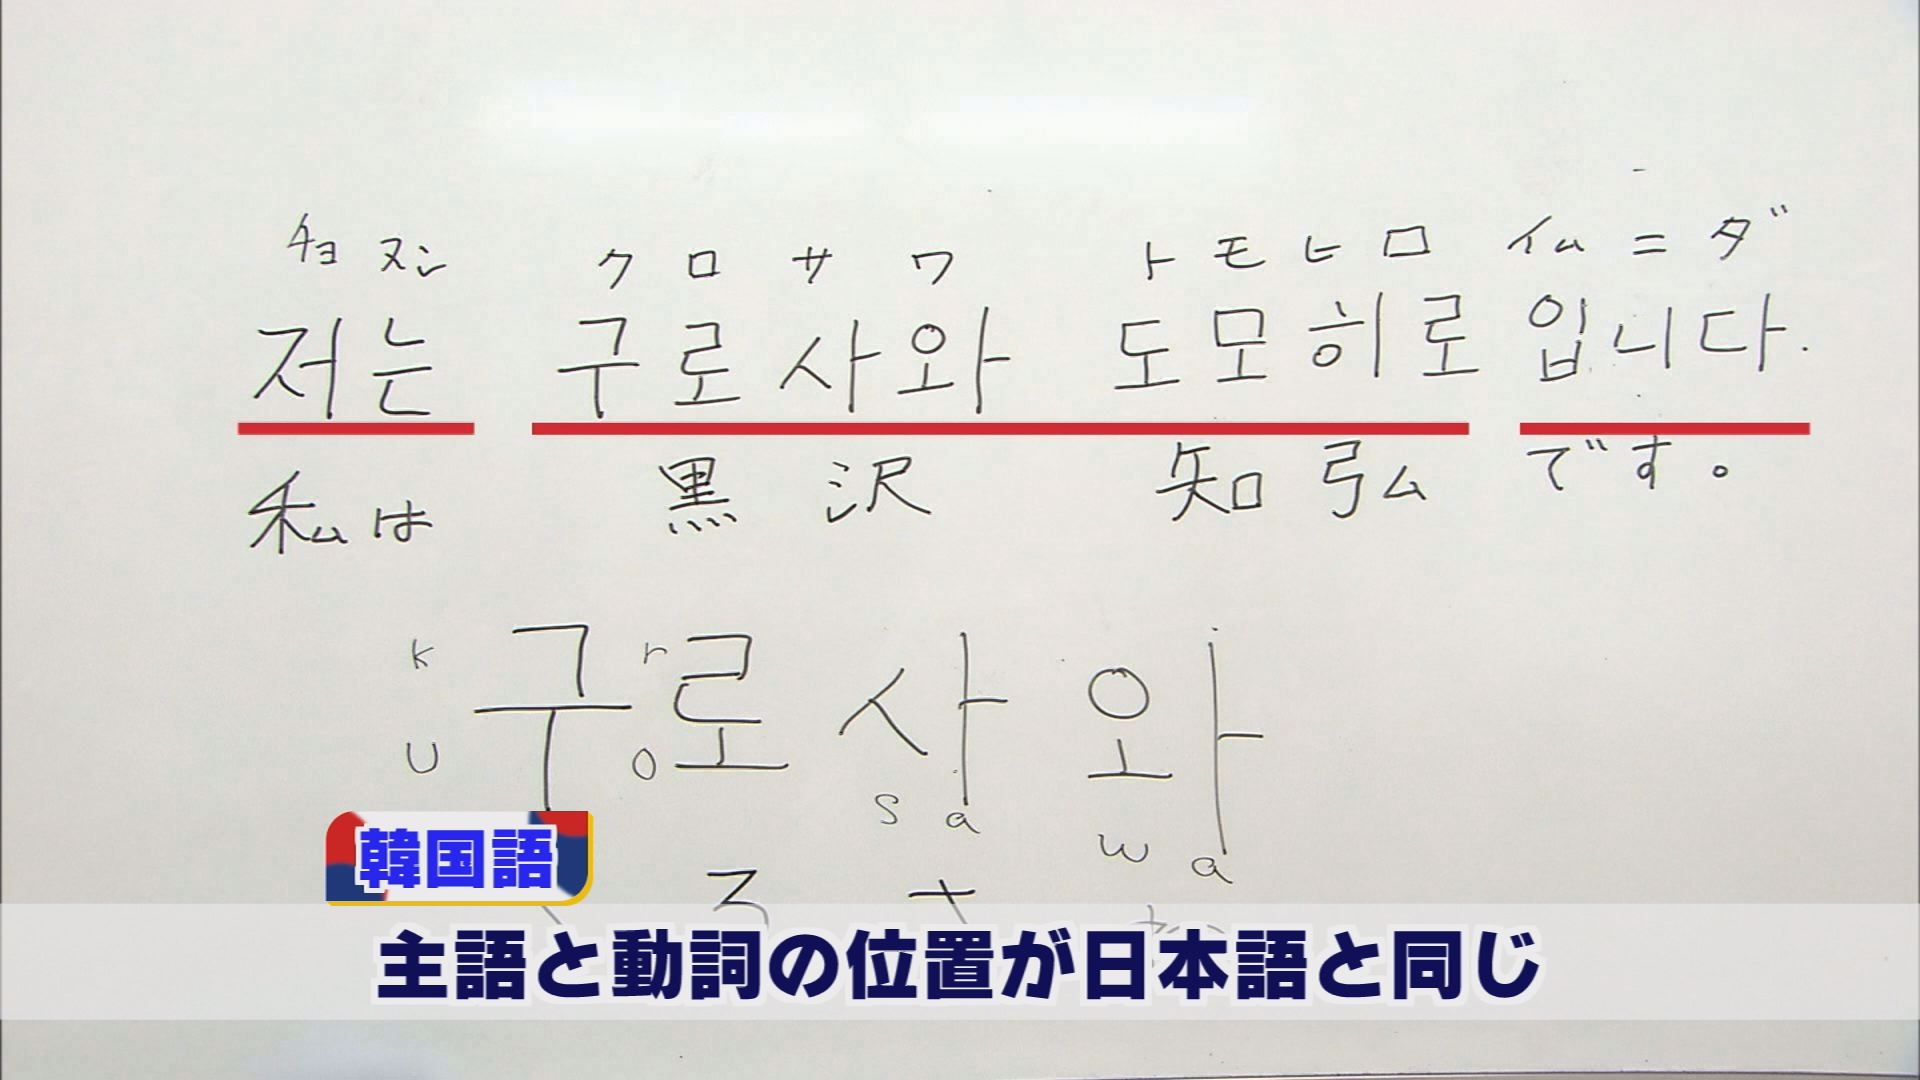 チョ ヌン クロサワ トモヒロ イムニダ
저는 구로사와 도모히로 입니다.
私は 黒沢 知弘 です。
k r
구로사와
u o
s a w a
韓国語
主語と動詞の位置が日本語と同じ